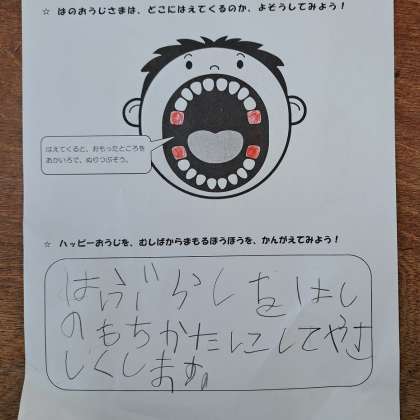 ☆ はのおうじさまは、どこにはえてくるのか、よそうしてみよう！
はえてくると、おもったところを
あかいろで、ぬりつぶそう。
☆ ハッピーおうじを、むしばからまもるほうほうを、かんがえてみよう！
はぶらしをはし
のもちかたにしてやさ
しくします。